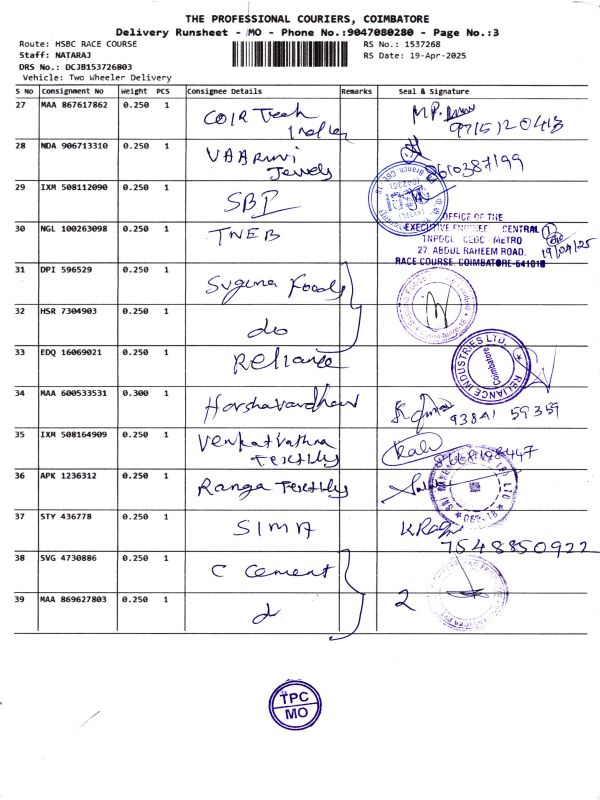 THE PROFESSIONAL COURIERS, COIMBATORE
Delivery Runsheet - MO - Phone No.:9047080280 - Page No.:3
Route: HSBC RACE COURSE
RS No.: 1537268
Staff: NATARAJ
RS Date: 19-Apr-2025
DRS No.: DCJB153726803
Vehicle: Two Wheeler Delivery
S No Consignment No Weight PCS Consignee Details Remarks Seal & Signature
27 MAA 867617862 0.250 1 COIR Tech India M.P. 9715120413
28 NDA 906713310 0.250 1 VAARUNI Jewels 8610387199
29 IXM 508112090 0.250 1 SBI
30 NGL 100263098 0.250 1 TNEB
OFFICE OF THE
EXECUTIVE ENGINEER CENTRAL
TNPDCL CEDC METRO
27. ABDUL RAHEEM ROAD,
RACE COURSE. COIMBATORE-641018
19/04/25
31 DPI 596529 0.250 1 Suguna Foods
32 HSR 7304903 0.250 1 do
33 EDQ 16069021 0.250 1 Reliance
RELIANCE INDUSTRIES LTD.
Coimbatore
34 MAA 600533531 0.300 1 Harshavardhan 93841 59359
35 IXM 508164909 0.250 1 Venkatrathna Textiles Kali
36 APK 1236312 0.250 1 Ranga Textiles
37 STY 436778 0.250 1 SIMA K.Raj 7548850922
38 SVG 4730886 0.250 1 C Cement
39 MAA 869627803 0.250 1 d 2
TPC
MO